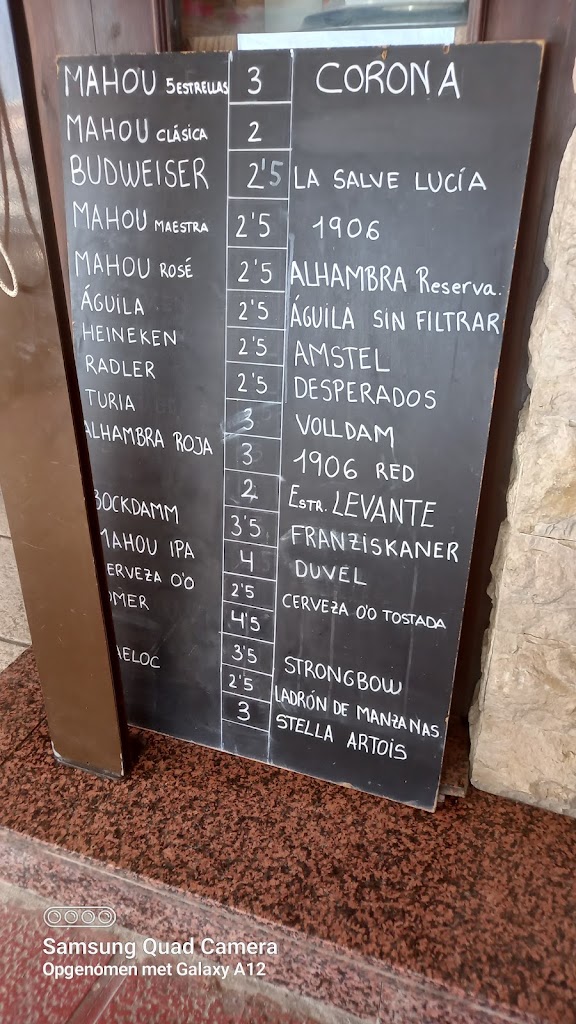 MAHOU 5ESTRELLAS 3 CORONA
MAHOU CLÁSICA 2
BUDWEISER 2'5 LA SALVE LUCÍA
MAHOU MAESTRA 2'5 1906
MAHOU ROSÉ 2'5 ALHAMBRA Reserva.
ÁGUILA 2'5 ÁGUILA SIN FILTRAR
HEINEKEN 2'5 AMSTEL
RADLER 2'5 DESPERADOS
TURIA 3 VOLLDAM
ALHAMBRA ROJA 3 1906 RED
2 ESTR. LEVANTE
BOCKDAMM 3'5 FRANZISKANER
MAHOU IPA 4 DUVEL
ERVEZA 0'0 2'5 CERVEZA 0'0 TOSTADA
OMER 4'5
3'5 STRONGBOW
AELOC 2'5 LADRÓN DE MANZANAS
3 STELLA ARTOIS
Samsung Quad Camera
Opgenomen met Galaxy A12